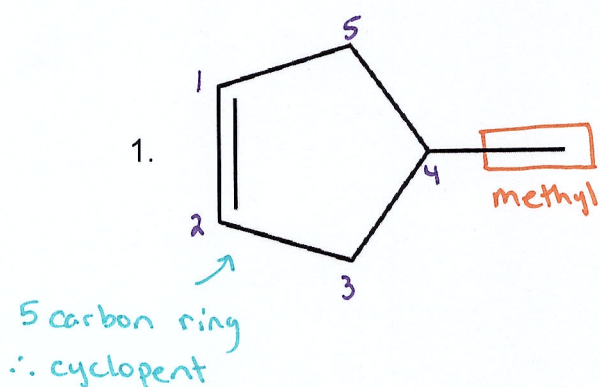 5
1
1.
4
methyl
2
3
5 carbon ring
∴ cyclopent